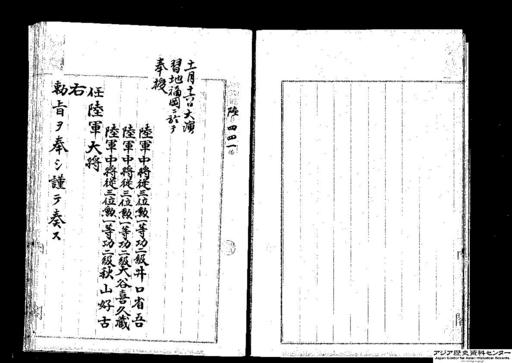 陸 四四一
十一月十六日大演
習地福岡ニ於テ
奉授
陸軍中将従三位勲一等功二級井口省吾
陸軍中将従三位勲一等功二級大谷喜久蔵
陸軍中将従三位勲一等功二級秋山好古
任陸軍大将
右
勅旨ヲ奉シ謹テ奏ス
アジア歴史資料センター
Japan Center for Asian Historical Records